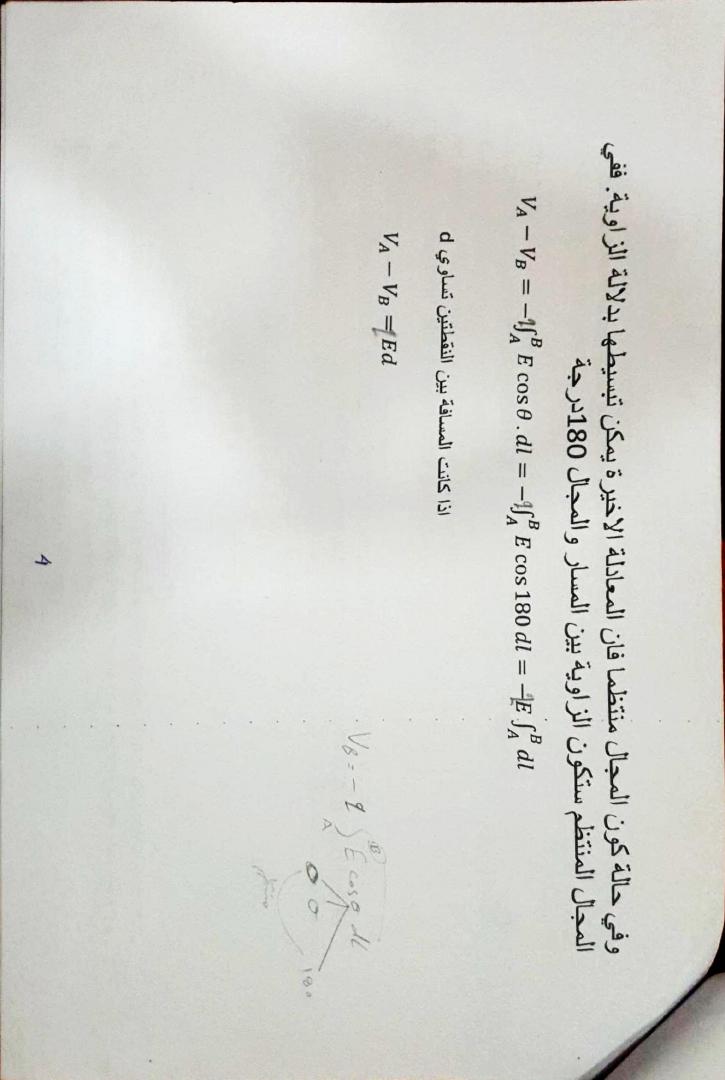 وفي حالة كون المجال منتظما فان المعادلة الاخيرة يمكن تبسيطها بدلالة الزاوية. ففي
المجال المنتظم ستكون الزاوية بين المسار والمجال 180درجة
V_A − V_B = −q∫_A^B E cos θ . dl = −q∫_A^B E cos 180 dl = −qE ∫_A^B dl
اذا كانت المسافة بين النقطتين تساوي d
V_A − V_B = qEd
V_B = − q ∫_A^B E cosθ dl
180
4